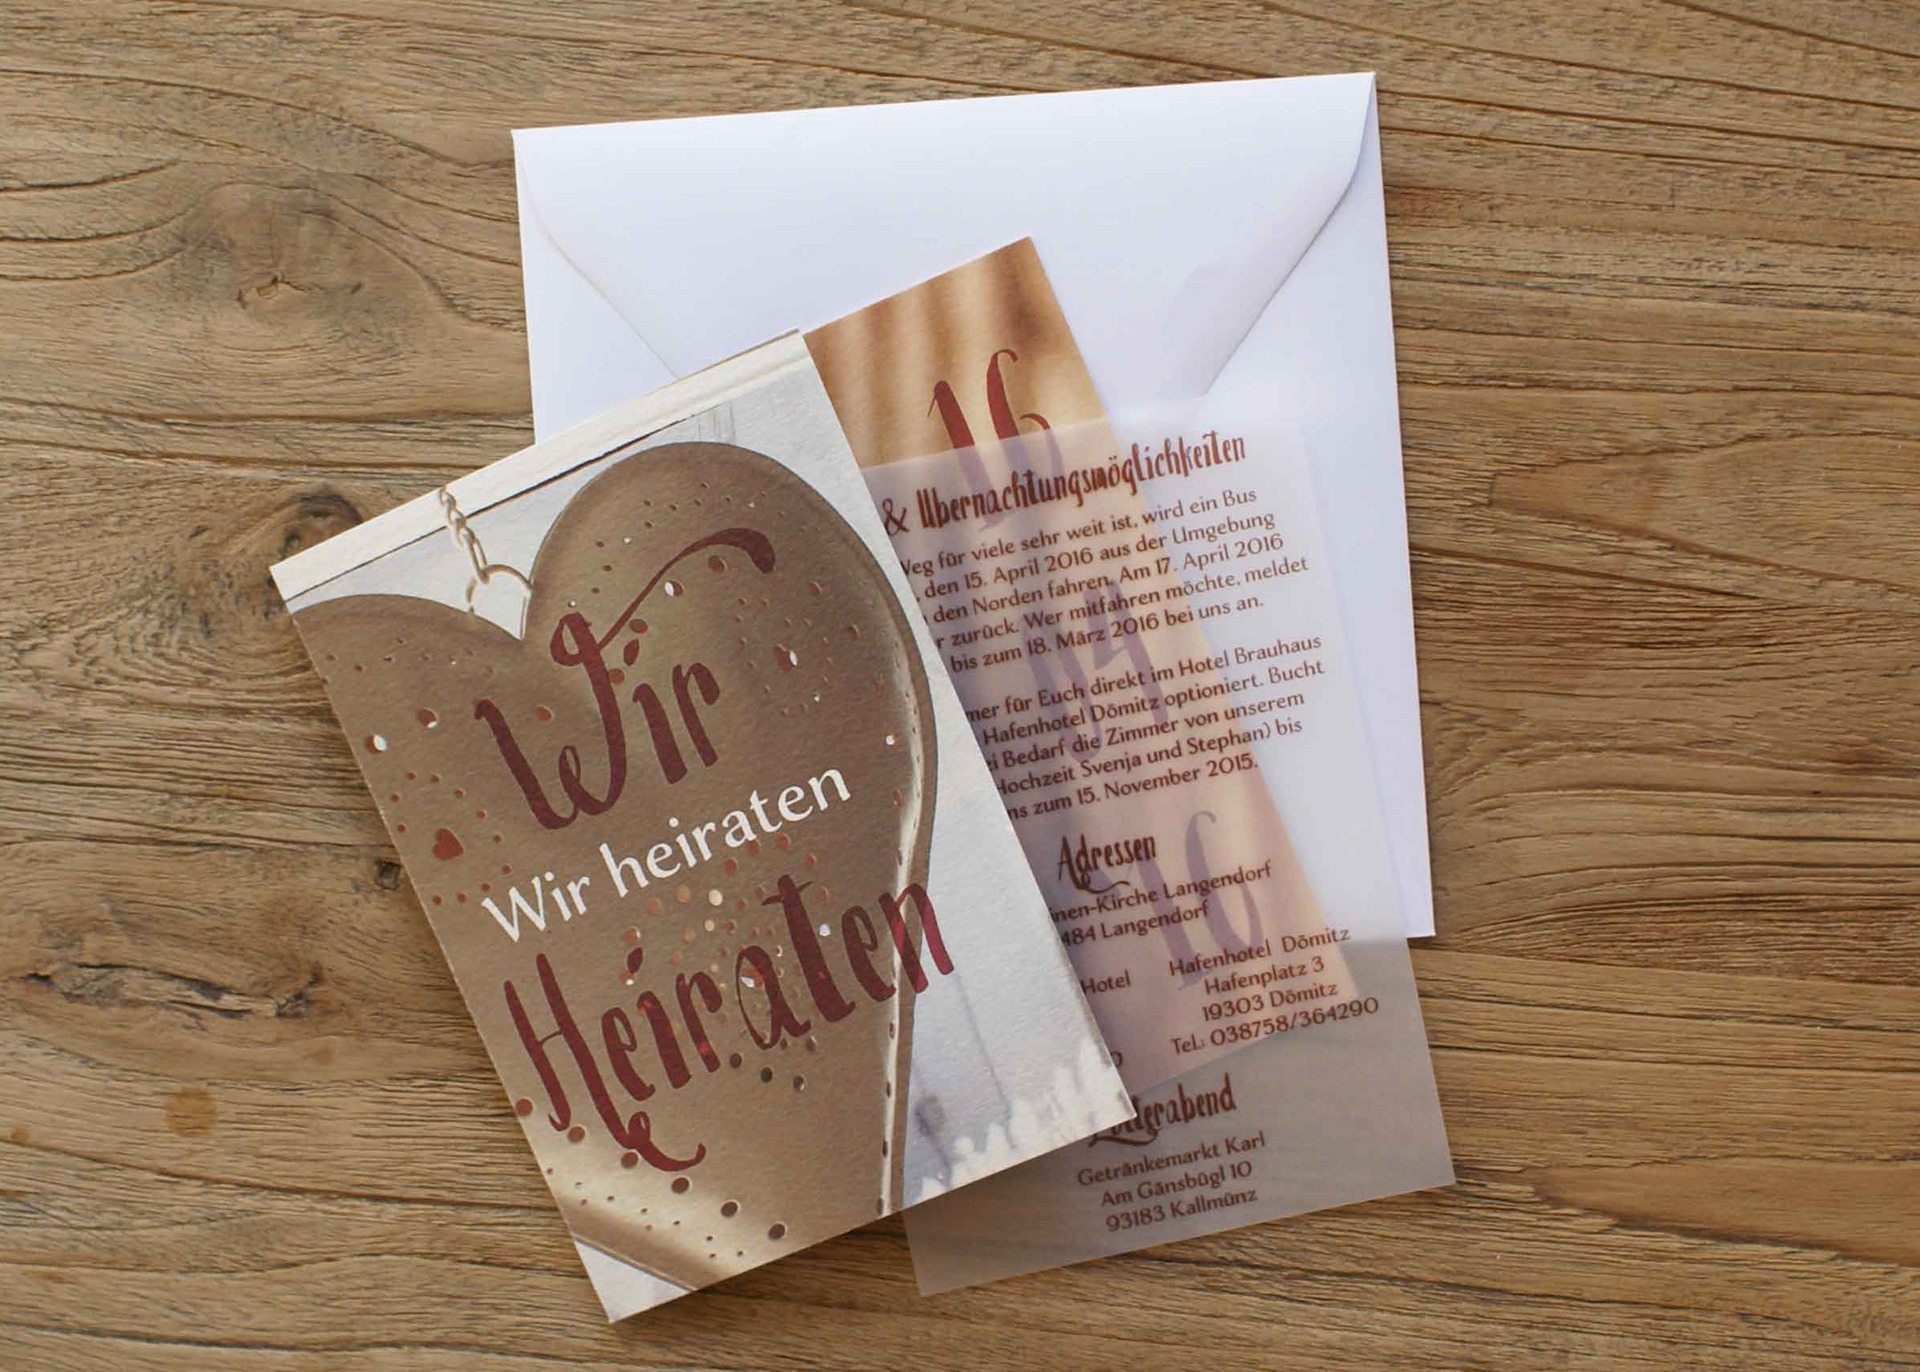 Wir
Wir heiraten
Heiraten
16
04
16
& Übernachtungsmöglichkeiten
Weg für viele sehr weit ist, wird ein Bus
, den 15. April 2016 aus der Umgebung
den Norden fahren. Am 17. April 2016
r zurück. Wer mitfahren möchte, meldet
bis zum 18. März 2016 bei uns an.
mer für Euch direkt im Hotel Brauhaus
Hafenhotel Dömitz optioniert. Bucht
ei Bedarf die Zimmer von unserem
Hochzeit Svenja und Stephan) bis
ns zum 15. November 2015.
Adressen
inen-Kirche Langendorf
484 Langendorf
Hotel
Hafenhotel Dömitz
Hafenplatz 3
19303 Dömitz
0 Tel.: 038758/364290
Polterabend
Getränkemarkt Karl
Am Gänsbügl 10
93183 Kallmünz